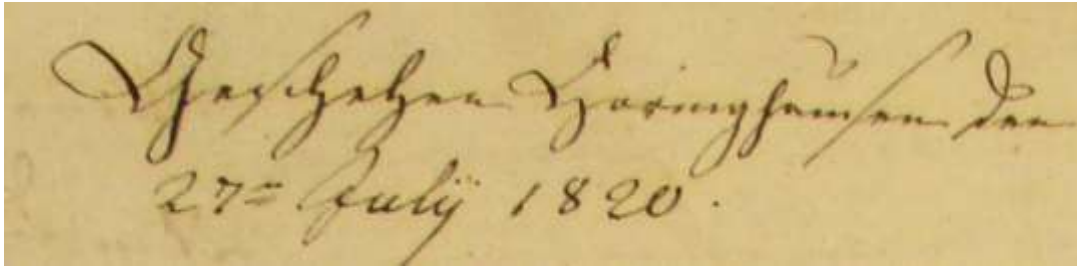 Geschehen Höringhausen den
27ten July 1820.